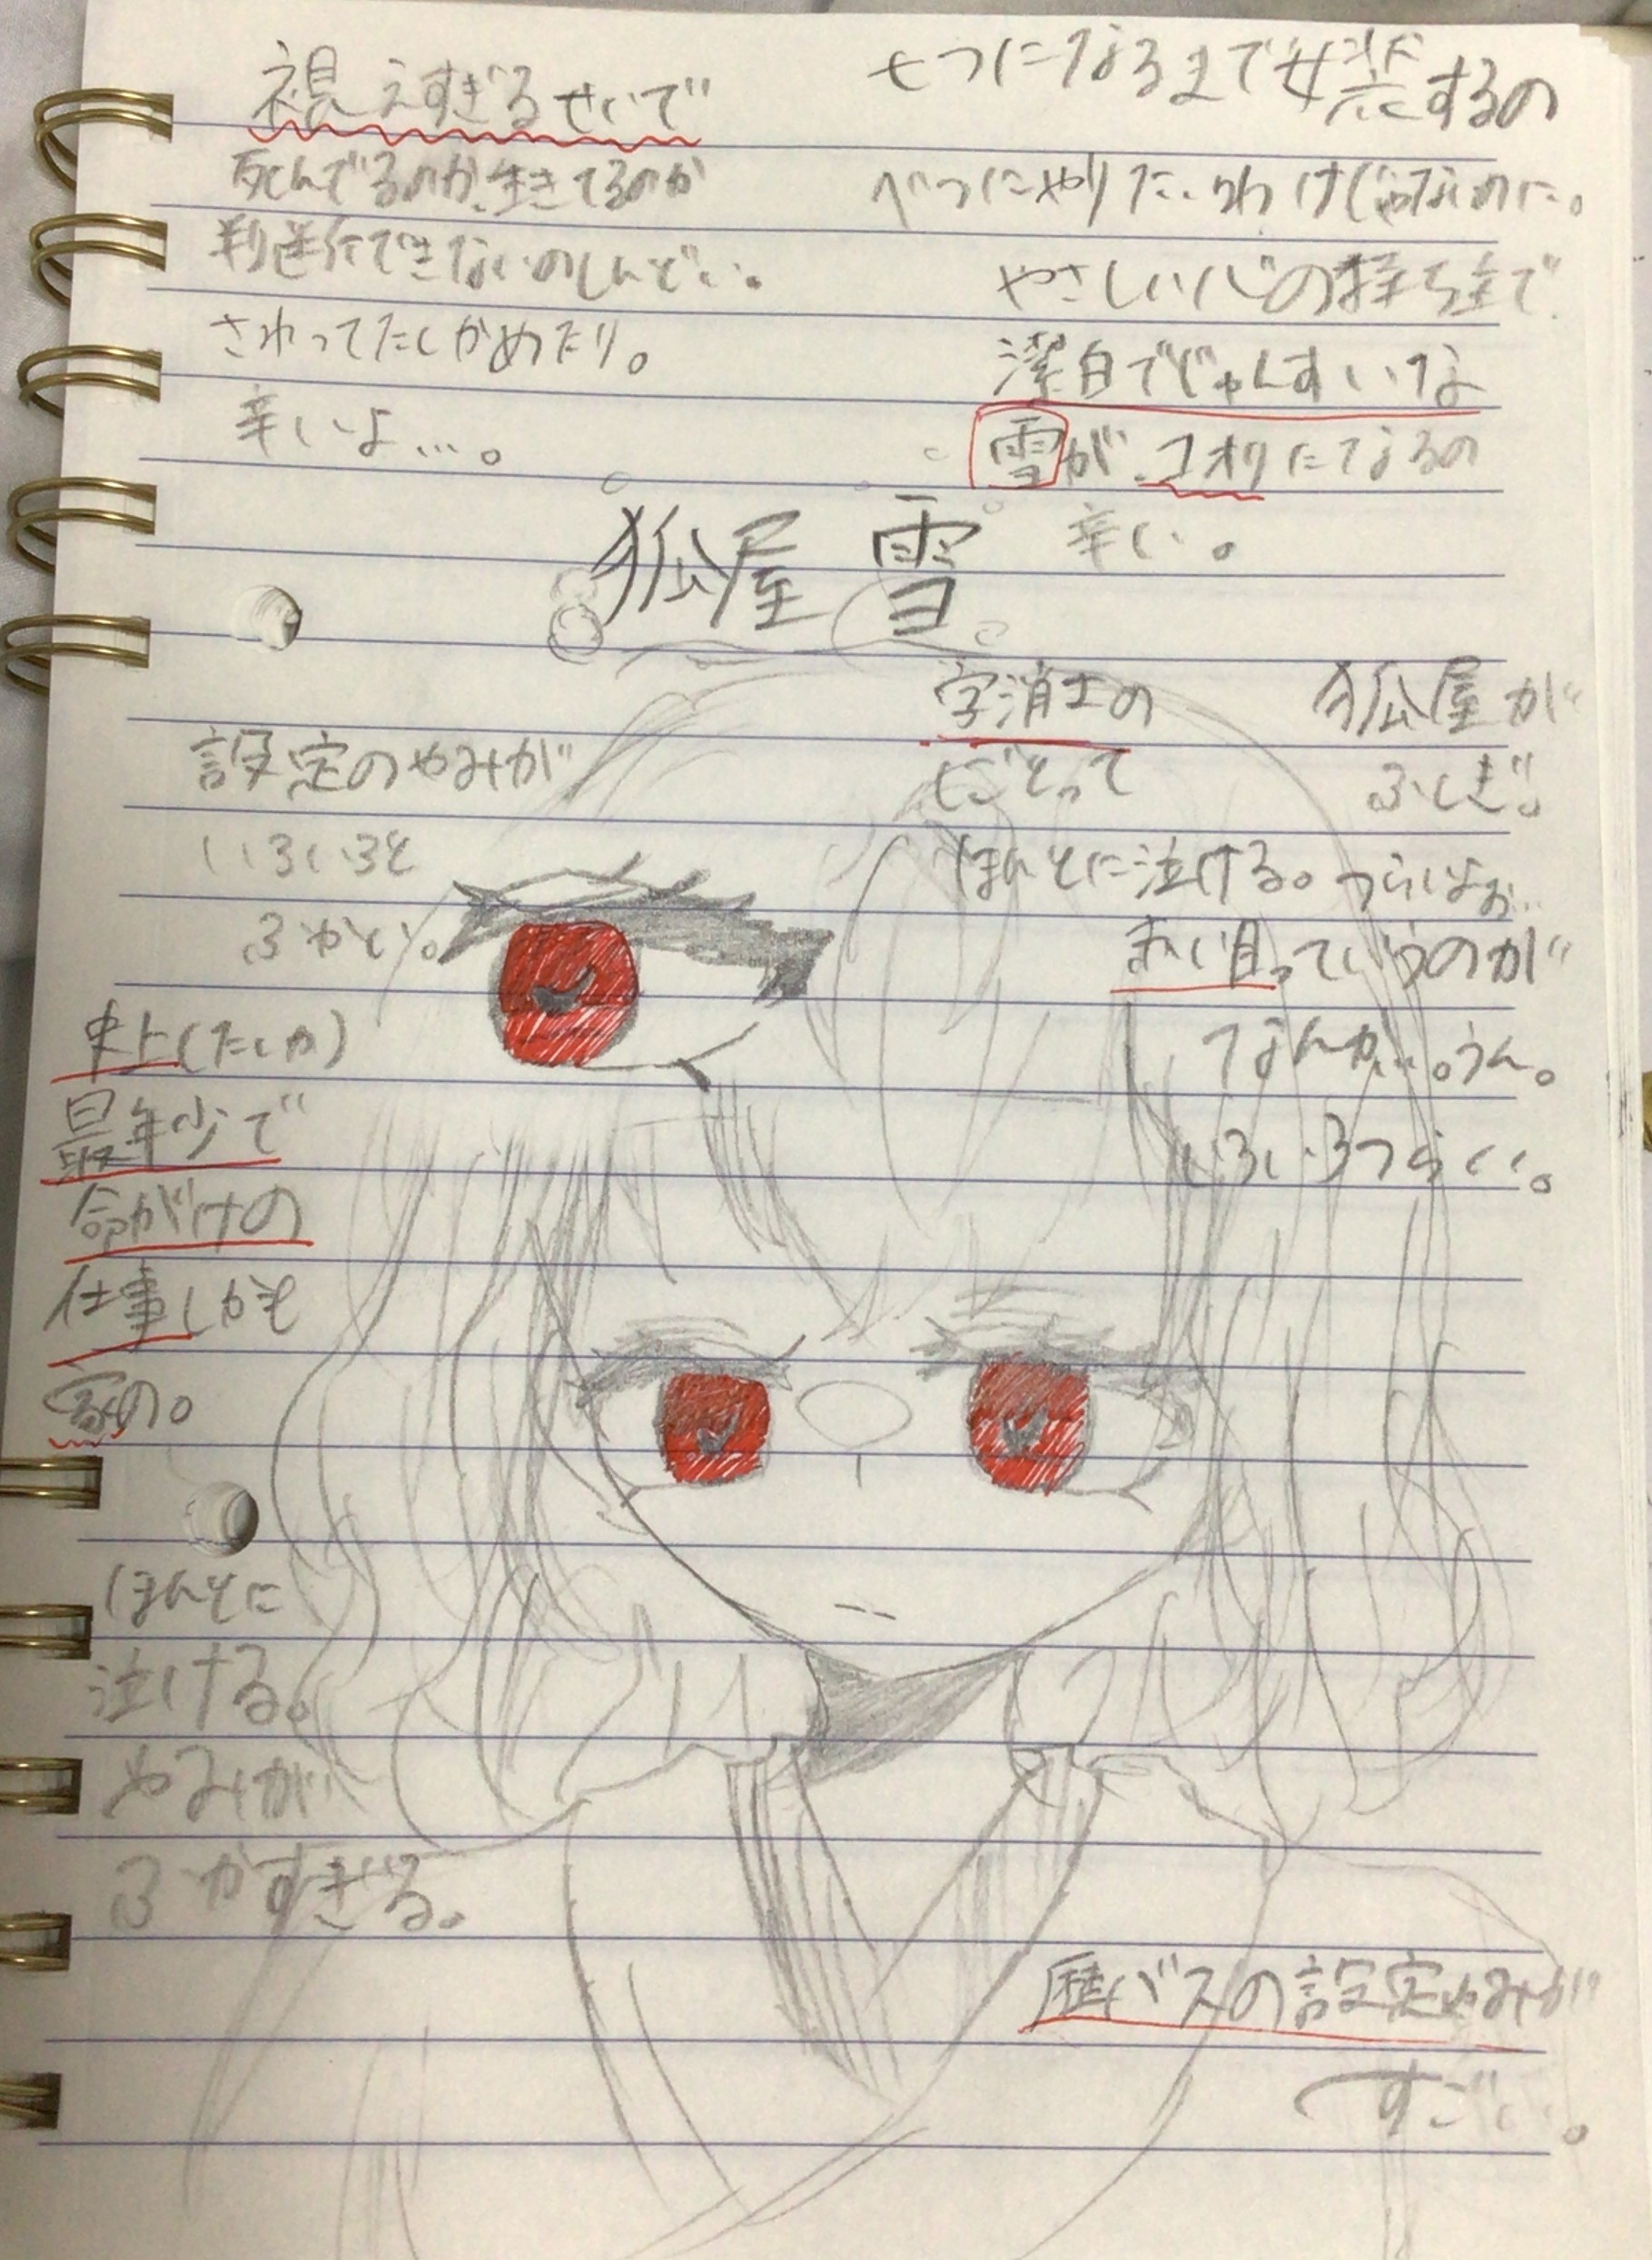 視えすぎるせいで
死んでるのか、生きてるのか
判送行できないのしんどい。
さわってたしかめたり。
辛いよ…。
七つになるまで女装するの
べつにやりたいわけじゃないのに。
やさしい心の持ち主で
潔白でじゅんすいな
雪が、コオリになるの
辛い。
狐屋 雪
設定のやみが
いろいろと
ふかい。
字消士の
しごとって
ほんとに泣ける。つらいよぉ…
狐屋が
ふしぎ。
赤い目っていうのが
なんか…。うん。
いろいろつらくい。
史上(たしか)
最年少で
命がけの
仕事しかも
家の。
ほんとに
泣ける。
やみが
ふかすぎる。
歴バスの設定やみが
すごい。